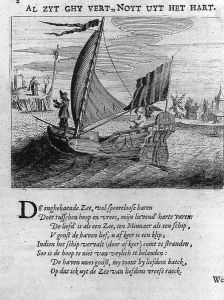 2
AL ZYT GHY VERT, NOYT UYT HET HART.
DE onghebaende Zee, vol spoorloose baren
Doet tusschen hoop en vrees, mijn lievend' harte varen:
De liefd' is als een Zee, een Minnaer als een schip,
V gonst de haven lief, u af keer is een klip;
Indien het schip vervalt (door af keer) comt te stranden,
Soo is de hoop te niet van veylich te belanden:
De haven uwes gonst, my toont by liefdens baeck,
Op dat ick uyt de Zee van liefdens vreese raeck.